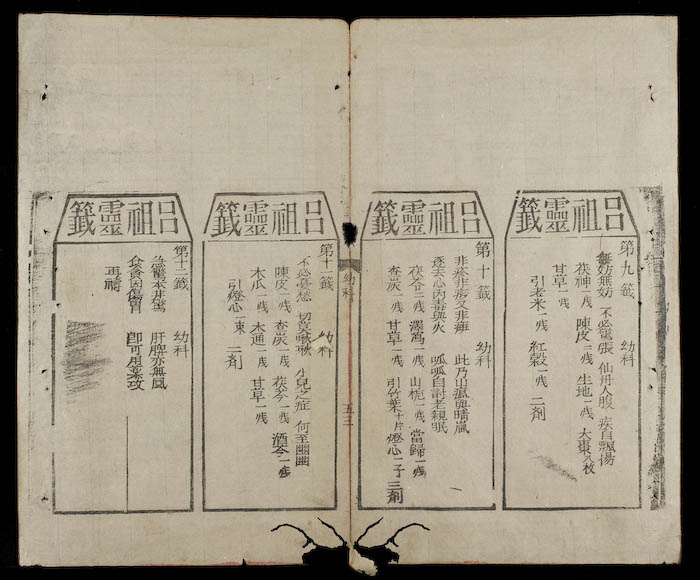 呂祖靈籤
第九籤 幼科
無妨無妨 不必驚張 仙丹人腹 疾自飄揚
茯神一戔 陳皮二戔 生地一戔 大棗八枚
甘草一戔
引老米一戔 紅穀一戔 二劑
呂祖靈籤
第十籤 幼科
非疹非痧又非癍 此乃山瘋與晴嵐
逐去心內毒與火 呱呱自討老親眠
茯苓二戔 澤瀉二戔 山梔一戔 當歸一戔
查炭一戔 甘草一戔 引竹葉十片燈心一子 三劑
幼科
五三
呂祖靈籤
第十一籤 幼科
不必憂愁 切莫啾啾 小兒之症 何至幽幽
陳皮一戔 查炭一戔 茯苓一戔 酒芩一戔
木瓜一戔 木通一戔 甘草一戔
引燈心一束 二劑
呂祖靈籤
第十二籤 幼科
急驚本非驚 肝脾亦無風
食貪因傷胃 卽可用藥攻
再禱